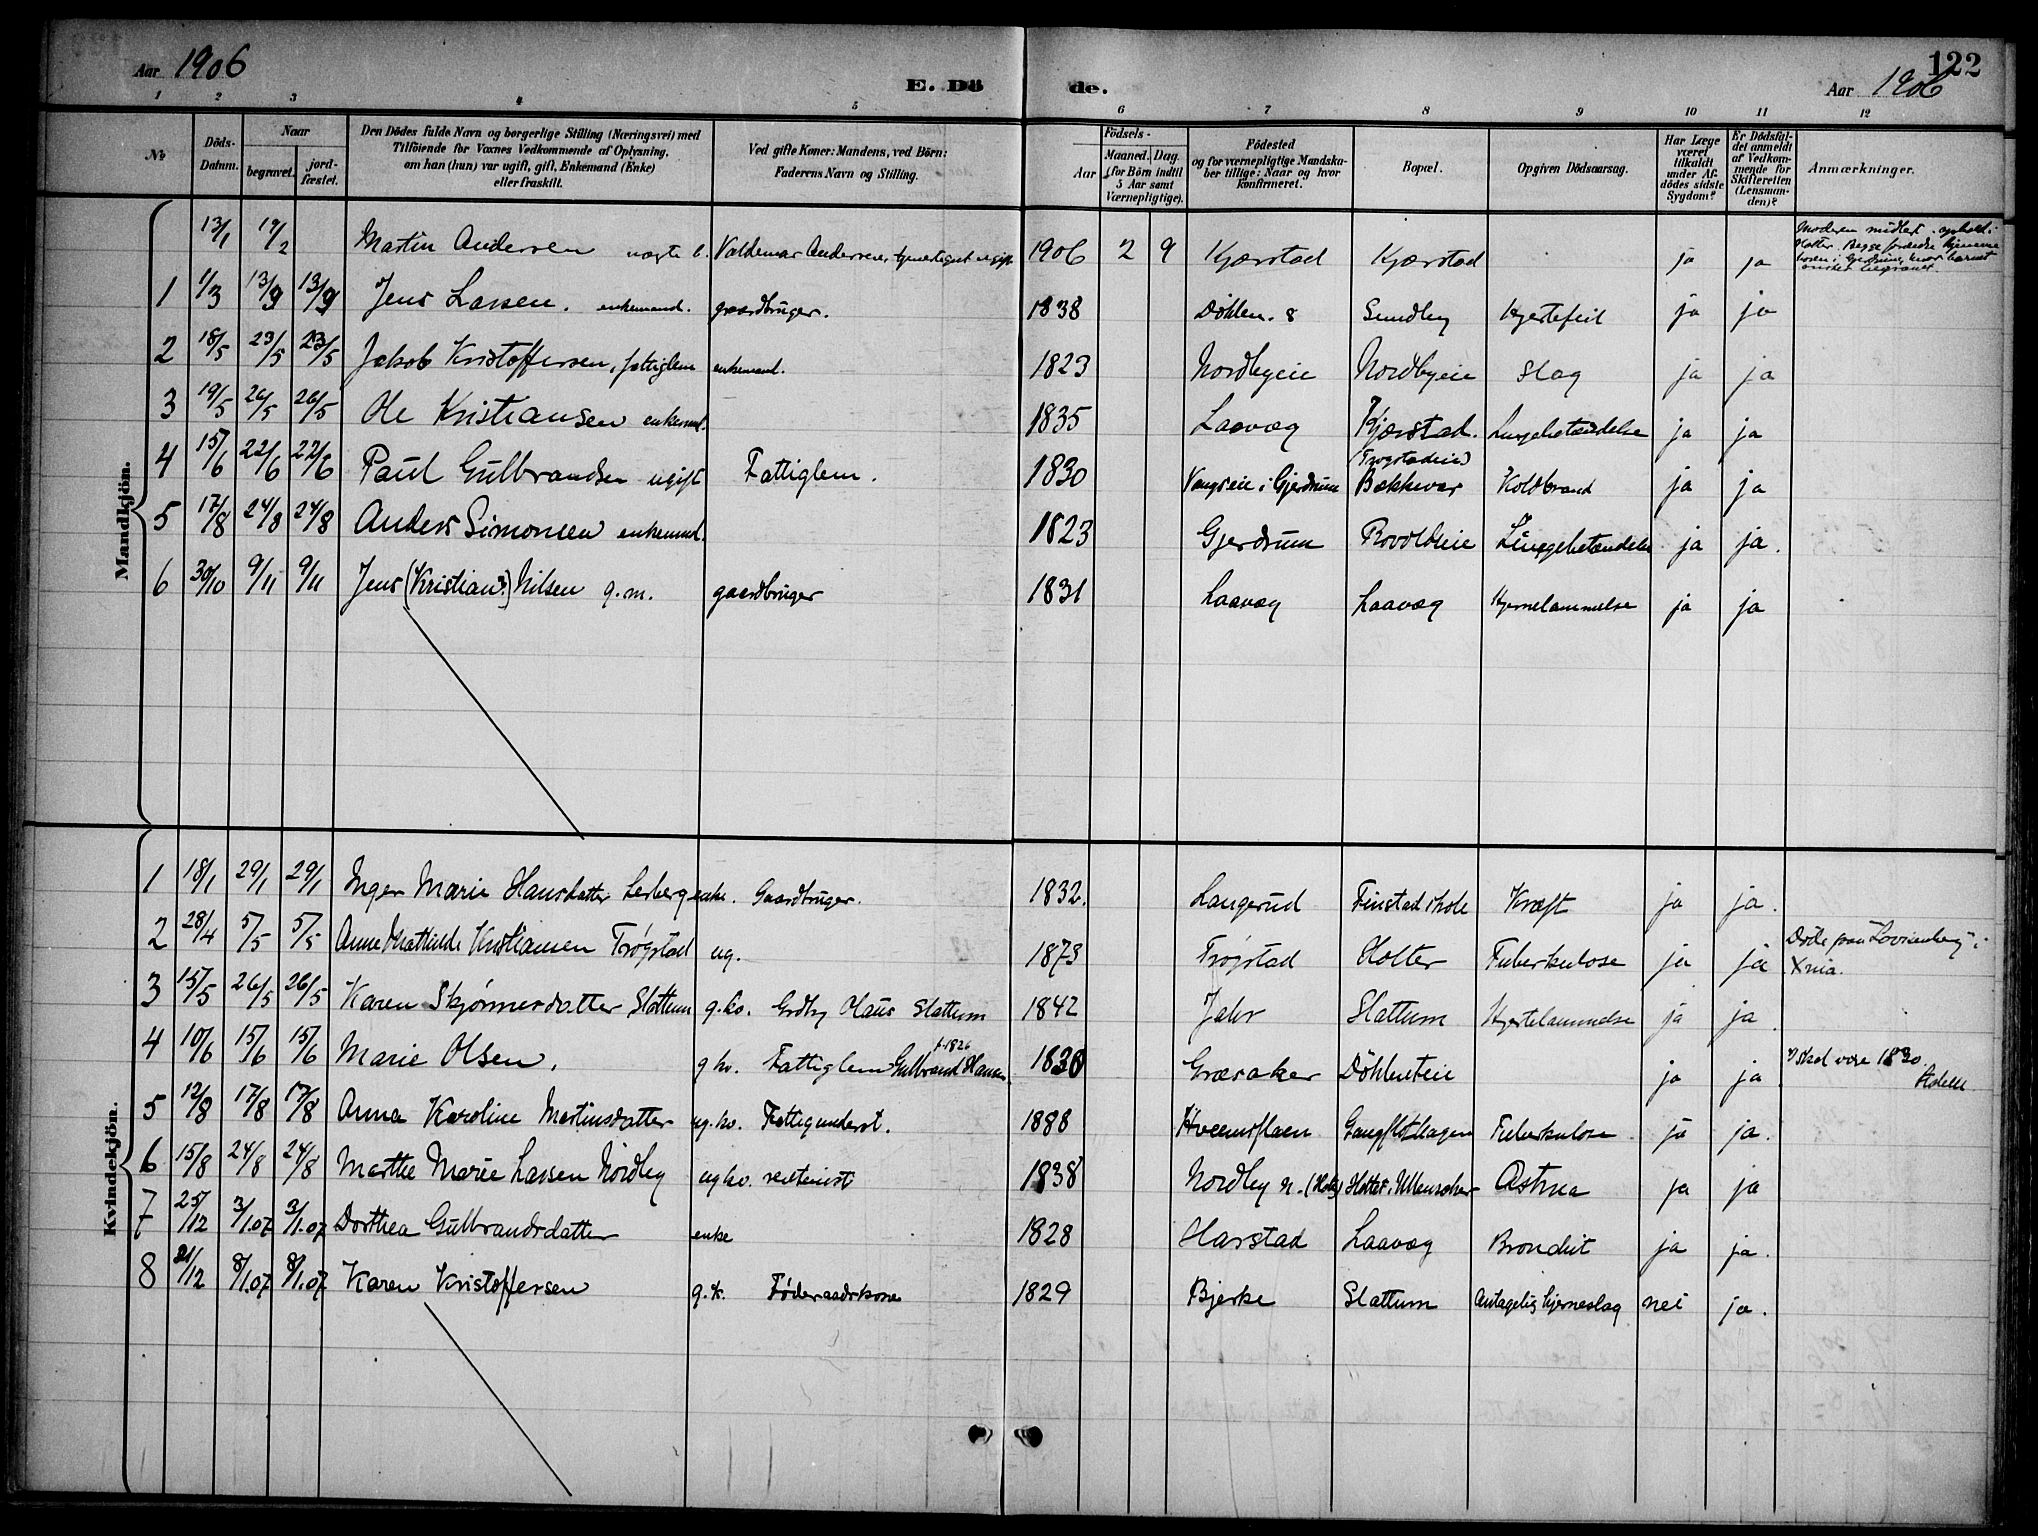 Aar 1906
E. Dö de.
122
Aar 1906
1 2 3 4 5 6 7 8 9 10 11 12
№
Döds-Datum.
Naar
begravet.
jord-fæstet.
Den Dödes fulde Navn og borgerlige Stilling (Næringsvei) med
Tilföiende for Voxnes Vedkommende af Oplysning,
om han (hun) var ugift, gift, Enkemand (Enke)
eller fraskilt.
Ved gifte Koner: Mandens, ved Börn:
Faderens Navn og Stilling.
Födsels-
Aar
Maaned. Dag.
(for Börn indtil
5 Aar samt
Værnepligtige).
Födested
og for værnepligtige Mandska-
ber tillige: Naar og hvor
konfirmeret.
Bopæl.
Opgiven Dödsaarsag.
Har Læge
været
tilkaldt
under Af-
dödes sidste
Sygdom?
Er Dödsfal-
det anmeldt
af Vedkom-
mende for
Skifteretten
(Lensman-
den)?
Anmærkninger.
Mandkjön.
13/1 14/2 Martin Andersen uægte b. Valdemar Andersen, ugift 1906 2 9 Kjærstad Kjærstad ja ja
1 1/3 13/3 13/3 Jens Larsen. enkemand. gaardbruger. 1838 Döhlen. s Sundby Hjertefeil ja ja
2 18/5 23/5 23/5 Jakob Kristoffersen, fattiglem enkemand. 1823 Nordbyeie Nordbyeie Slag ja ja
3 19/5 26/5 26/5 Ole Kristiansen enkemd. 1835 Laavæg Kjærstad. Lungebetændelse ja ja
4 15/6 22/6 22/6 Paul Gulbrandsen ugift Fattiglem. 1830 Vangseie i Gjerdrum (Trogstadeie) Bakkevar Koldbrand ja ja
5 17/8 24/8 24/8 Anders Simonsen enkemd. 1823 Gjerdrum Rovoldeie Lungebetændelse ja ja.
6 30/10 9/11 9/11 Jens (Kristian?) Nilsen g.m. gaardbruger 1831 Laavæg Laavæg Hjernelammelse ja ja
Kvindekjön.
1 18/1 29/1 29/1 Inger Marie Hansdatter Lerberg enke. Gaardbruger. 1832. Langerud Finstad skole Kræft ja ja.
2 28/4 5/5 5/5 Anne Mathilde Kristiansen Trøgstad ug. 1873 Trøgstad Holter Tuberkulose ja ja Døde paa "Lovisenberg" i Xnia.
3 15/5 26/5 26/5 Karen Skjønnersdatter Slattum g.ko. Grdbr. Olaus Slattum 1842 Jahr Slattum Hjertelammelse ja ja
4 10/6 15/6 15/6 Marie Olsen. g ko. Fattiglem Gulbrand Hansen f. 1826 1830 Græsaker Döhleneie ja ja skal være 1830
5 12/8 17/8 17/8 Anna Karoline Martinsdatter ug.ko. Fattigunderst. 1888 Hveemsflaen Gangflothagen Tuberkulose ja ja.
6 15/8 24/8 24/8 Marthe Marie Larsen Nordby ug ko. 1838 Nordby n. (Holter) Holter, Ullensaker Astma ja ja
7 25/12 3/1.07 3/1.07 Dorthea Gulbrandsdatter enke 1828 Harstad Laavæg Bronchit ja ja.
8 31/12 8/1.07 8/1.07 Karen Kristoffersen g.k. Föderaadskone 1829 Bjerke Slattum Antagelig hjerneslag nei ja.